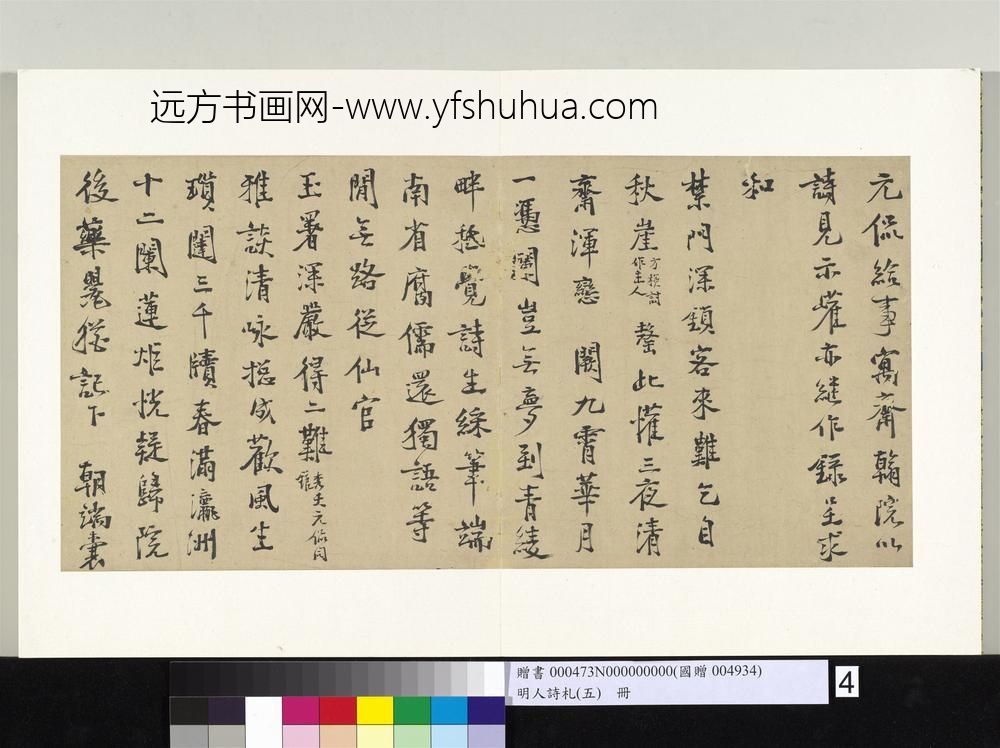 远方书画网-www.yfshuhua.com
元侃給事寓齋翰院以
詩見示㩁亦継作錄呈求
和
禁門深鎖客來難乞自
秋崖 方檢討作主人 整此 三夜清
齋渾戀 闕九霄華月
一憑闌豈無夢到青綾
畔抵覺詩生綵筆端
南省腐儒還獨語等
閒無路從仙官
玉署深嚴得二難 秀夫元侃同
雅談清咏捴成歡風生
瑣闥三千牘春滿瀛洲
十二闌蓮炬恍疑歸院
後藥 猶記下 朝端
贈書 000473N000000000(國贈 004934)
明人詩札(五) 冊
4